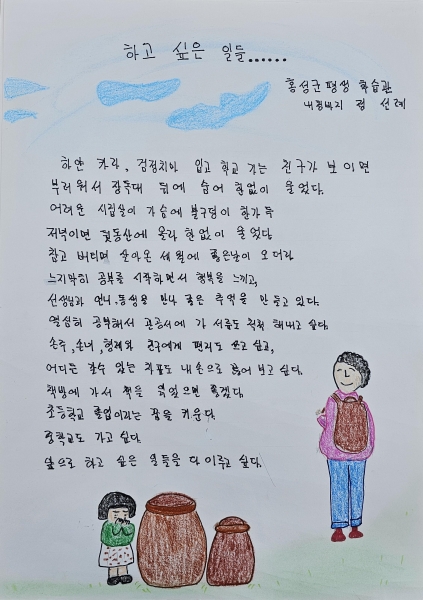 하고 싶은 일들......
홍성군 평생 학습관
선례
하얀 카라, 검정치마 입고 학교 가는 친구가 보이면
부러워서 장독대 뒤에 숨어 한없이 울었다.
어려운 시집살이 가슴에 불구덩이 한가득
저녁이면 뒷동산에 올라 한없이 울었다
참고 버티며 살아온 세월에 좋은날이 오더라
느지막히 공부를 시작하면서 행복을 느끼고,
선생님과 언니,동생을 만나 좋은 추억을 만들고 있다.
열심히 공부해서 관공서에 가 서류도 척척 해내고 싶다.
손주, 손녀, 형제와 친구에게 편지도 쓰고 싶고,
어디든 갈수 있는 차표도 내손으로 끊어 보고 싶다.
책방에 가서 책을 읽었으면 좋겠다.
초등학교 졸업이라는 꿈을 키운다.
중학교도 가고 싶다.
앞으로 하고 싶은 일들을 다 이루고 싶다.